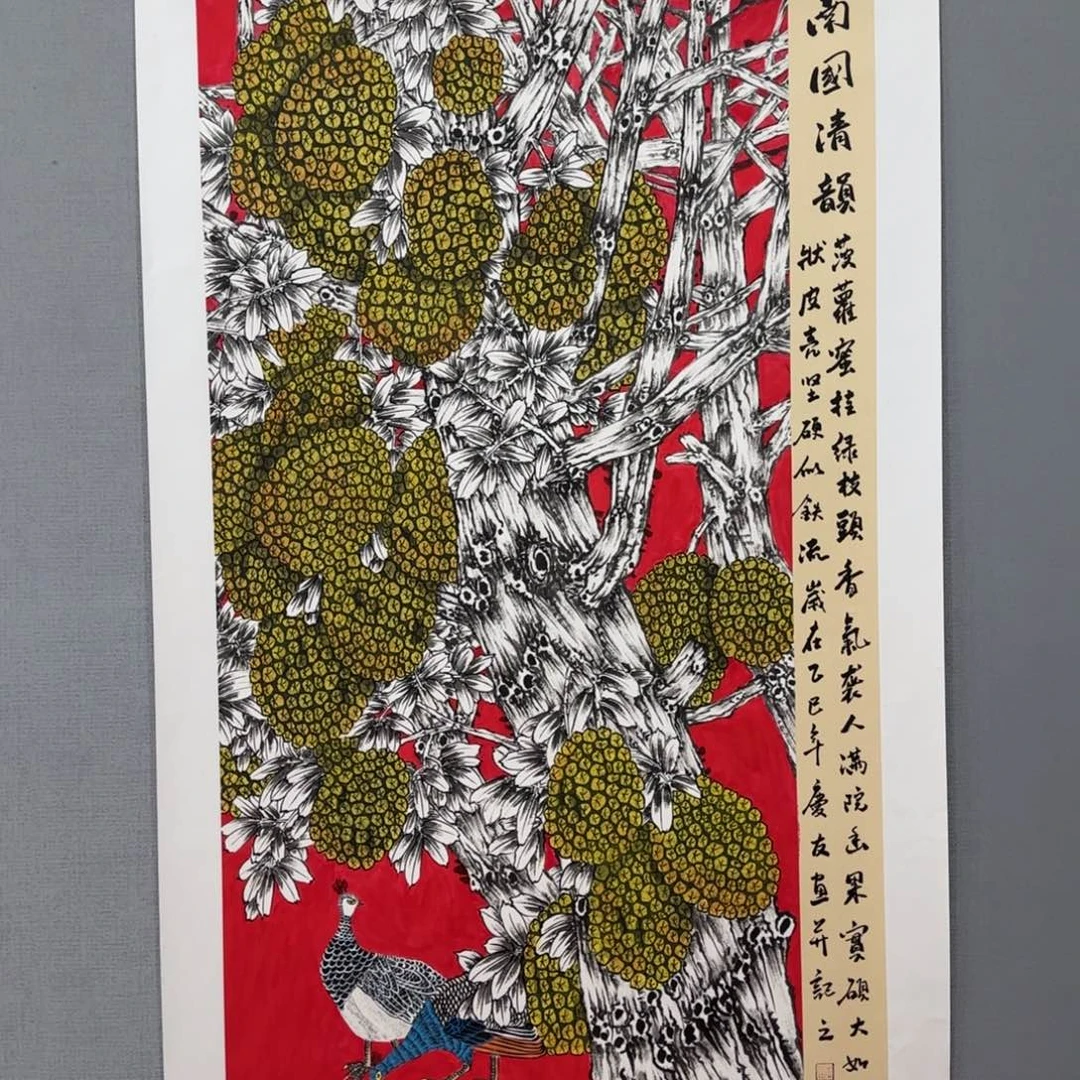 南國清韻
菠蘿蜜挂绿枝頭香氣袭人满院幽果實碩大如
狀皮亮坚碩似鉄流歲在乙巳年慶友畫并記之